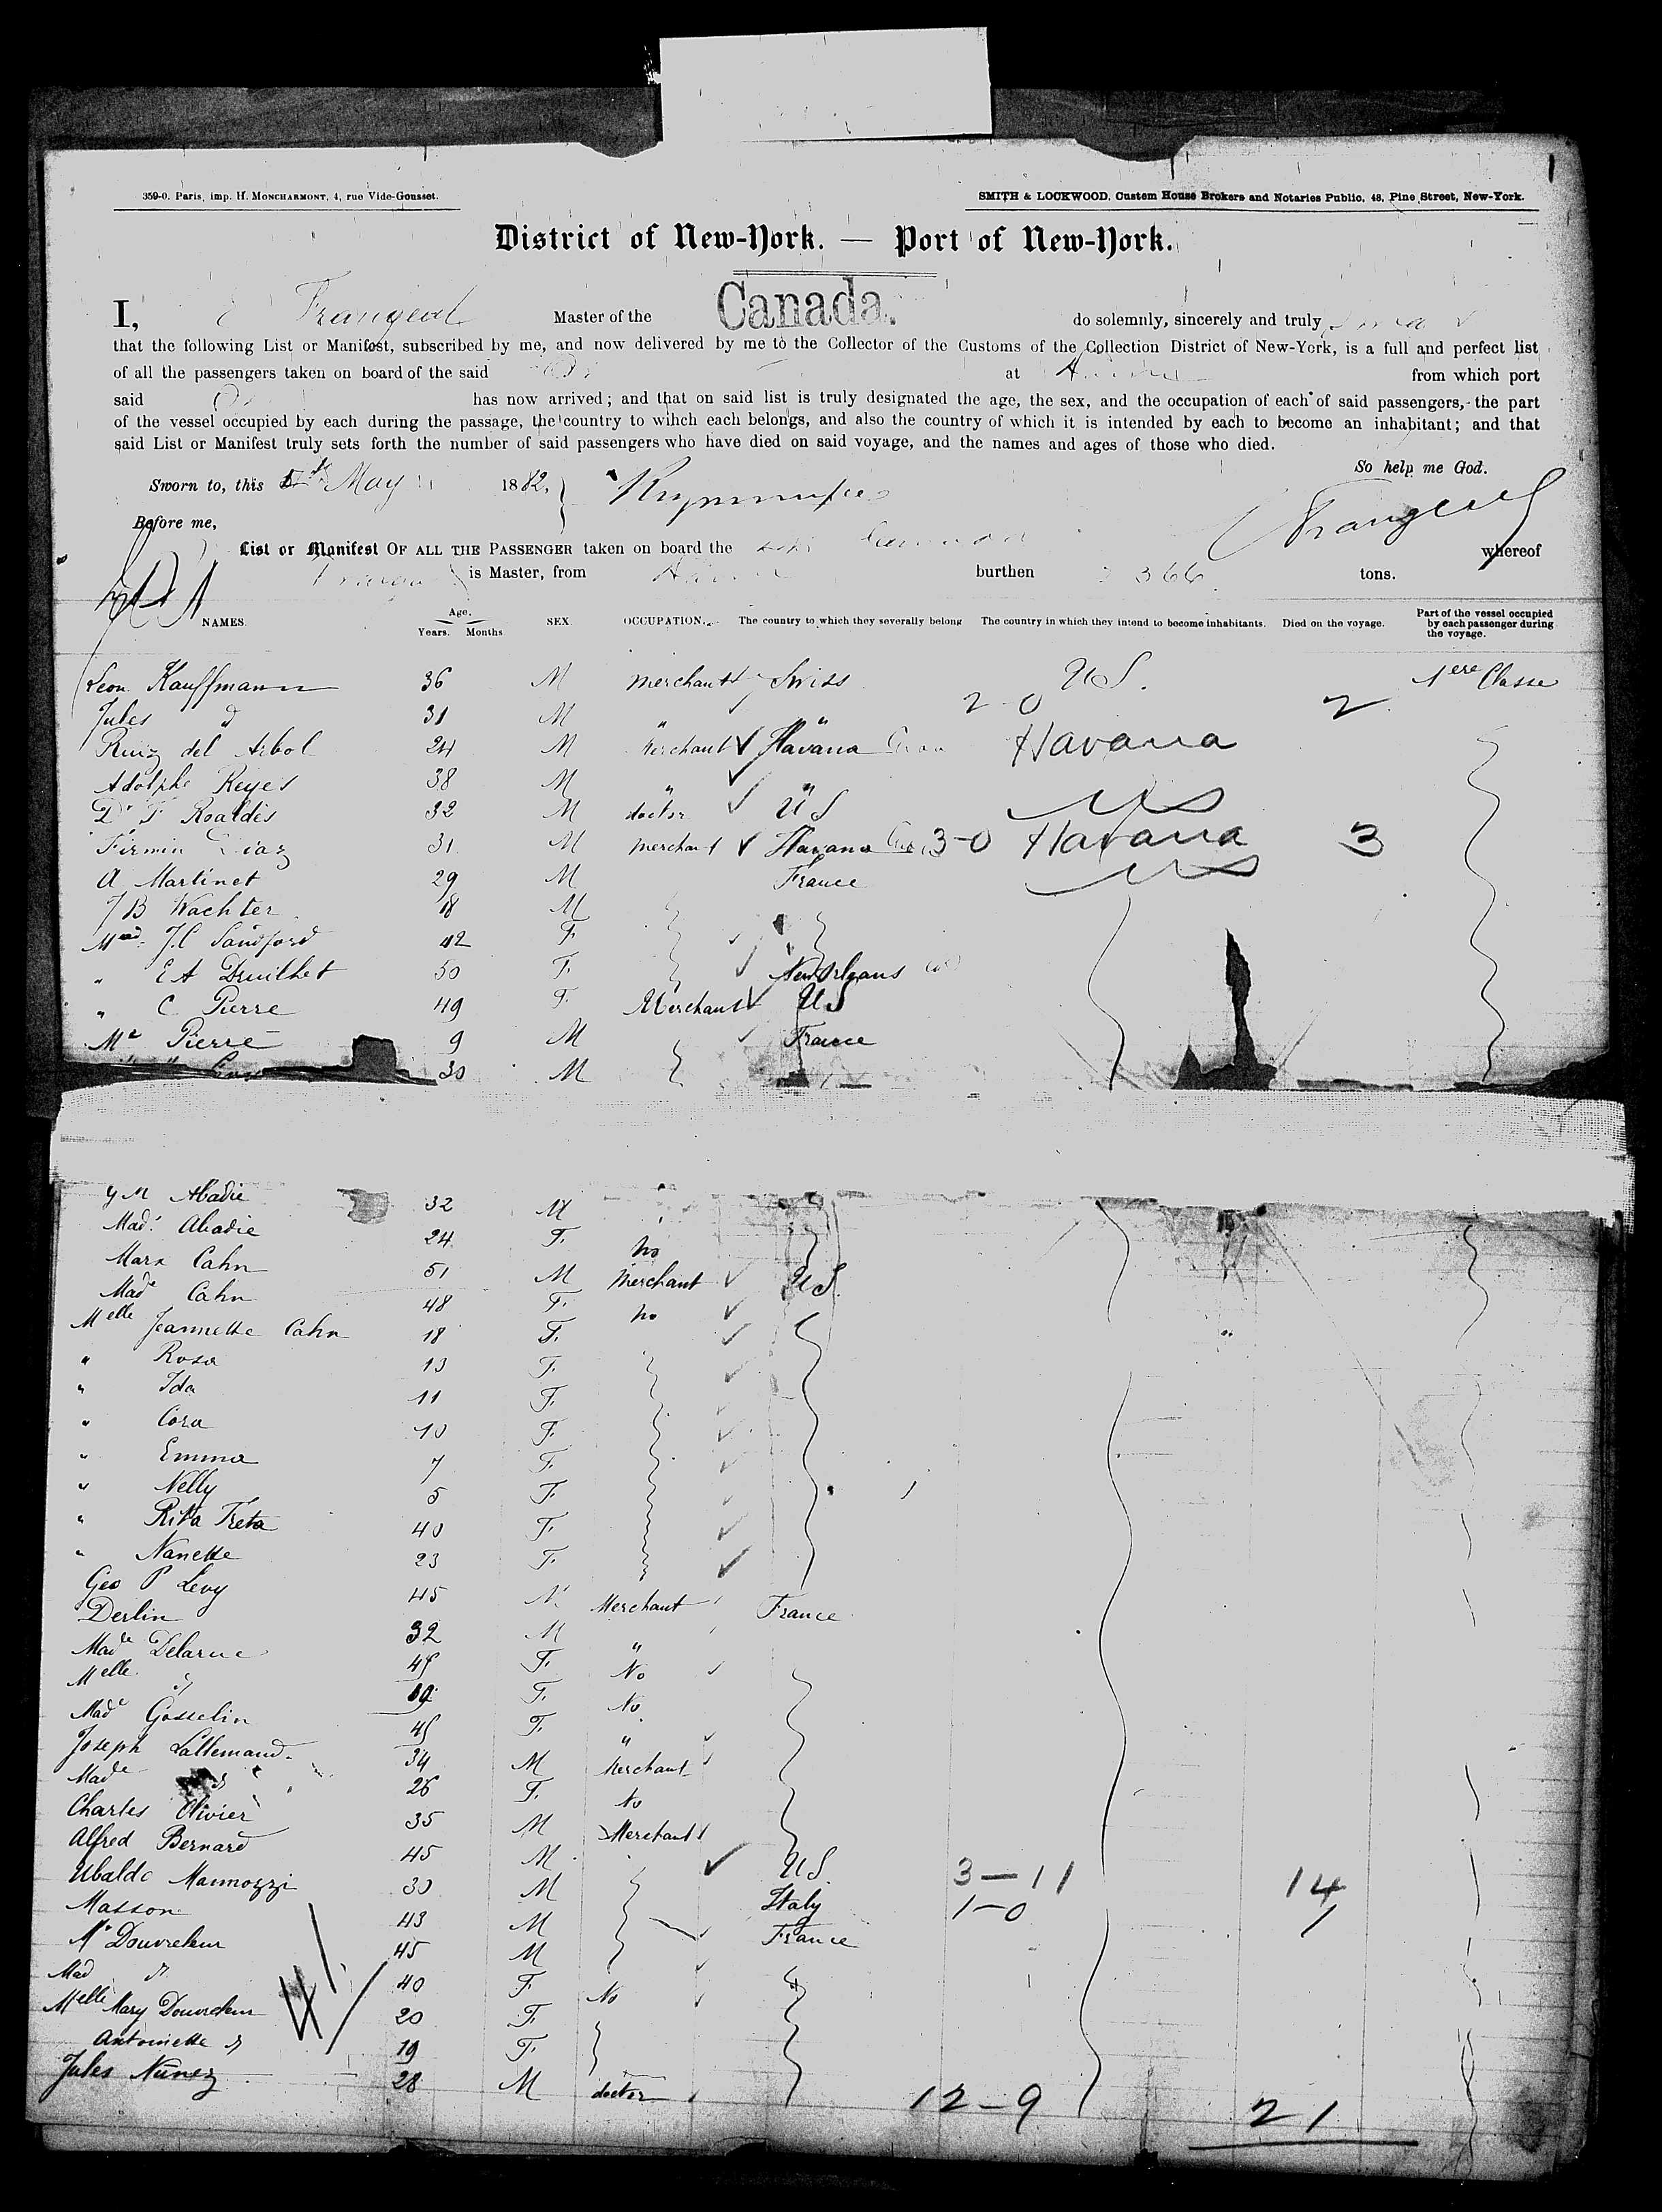 359-0. Paris, imp. H. MONCHARMONT, 4, rue Vide-Gousset.
SMITH & LOCKWOOD, Custom House Brokers and Notaries Public, 48, Pine Street, New-York.
District of New-York. — Port of New-York.
I, Frangeul Master of the Canada. do solemnly, sincerely and truly
that the following List or Manifest, subscribed by me, and now delivered by me to the Collector of the Customs of the Collection District of New-York, is a full and perfect list
of all the passengers taken on board of the said at Havre from which port
said has now arrived; and that on said list is truly designated the age, the sex, and the occupation of each of said passengers, the part
of the vessel occupied by each during the passage, the country to wihch each belongs, and also the country of which it is intended by each to become an inhabitant; and that
said List or Manifest truly sets forth the number of said passengers who have died on said voyage, and the names and ages of those who died.
So help me God.
Sworn to, this 5th May 1882.
Frangeul
Before me,
List or Manifest OF ALL THE PASSENGER taken on board the whereof
is Master, from Havre burthen 366 tons.
NAMES. Age. Years. Months SEX. OCCUPATION. The country to which they severally belong The country in which they intend to become inhabitants. Died on the voyage. Part of the vessel occupied by each passenger during the voyage.
Leon Kauffmann 36 M merchant Swiss US. 1ere Classe
Jules d 31 M " " 2-0 2
Ruiz del Arbol 24 M Merchant Havana Havana
Adolphe Reyes 38 M " "
Dr F Roaldes 32 M doctor US US
Firmin Diaz 31 M merchant Havana 3-0 Havana 3
A Martinet 29 M France US
J B Wachter 18 M
Mad. J.C Sandford 42 F.
" E A Druilhet 50 F. New Orleans
" C Pierre 49 F. Merchant US
Mr Pierre 9 M France
30 M
M Abadie 32 M
Mad. Abadie 24 F. no
Marx Cahn 51 M merchant US.
Made Cahn 48 F. no
Melle Jeannette Cahn 18 F.
" Rosa 13 F.
" Ida 11 F.
" Cora 10 F.
" Emma 7 F.
" Nelly 5 F.
" Rika Treta 40 F.
" Nanette 23 F.
Geo P Levy 45 M Merchant France
Derlin 32 M "
Made Delarue 48 F. No
Melle d 19 F. No
Made Gosselin 45 F. "
Joseph Lallemand 34 M Merchant
Made d 26 F. No
Charles Olivier 35 M Merchant
Alfred Bernard 45 M US. 3-11 14
Ubaldo Mannozzi 30 M Italy 1-0 1
Masson 43 M France
Mr Douvreleur 45 M
Mad d 40 F. No
Melle Mary Douvreleur 20 F.
Antoinette d 19 F.
Jules Nunez 28 M doctor
12-9 21